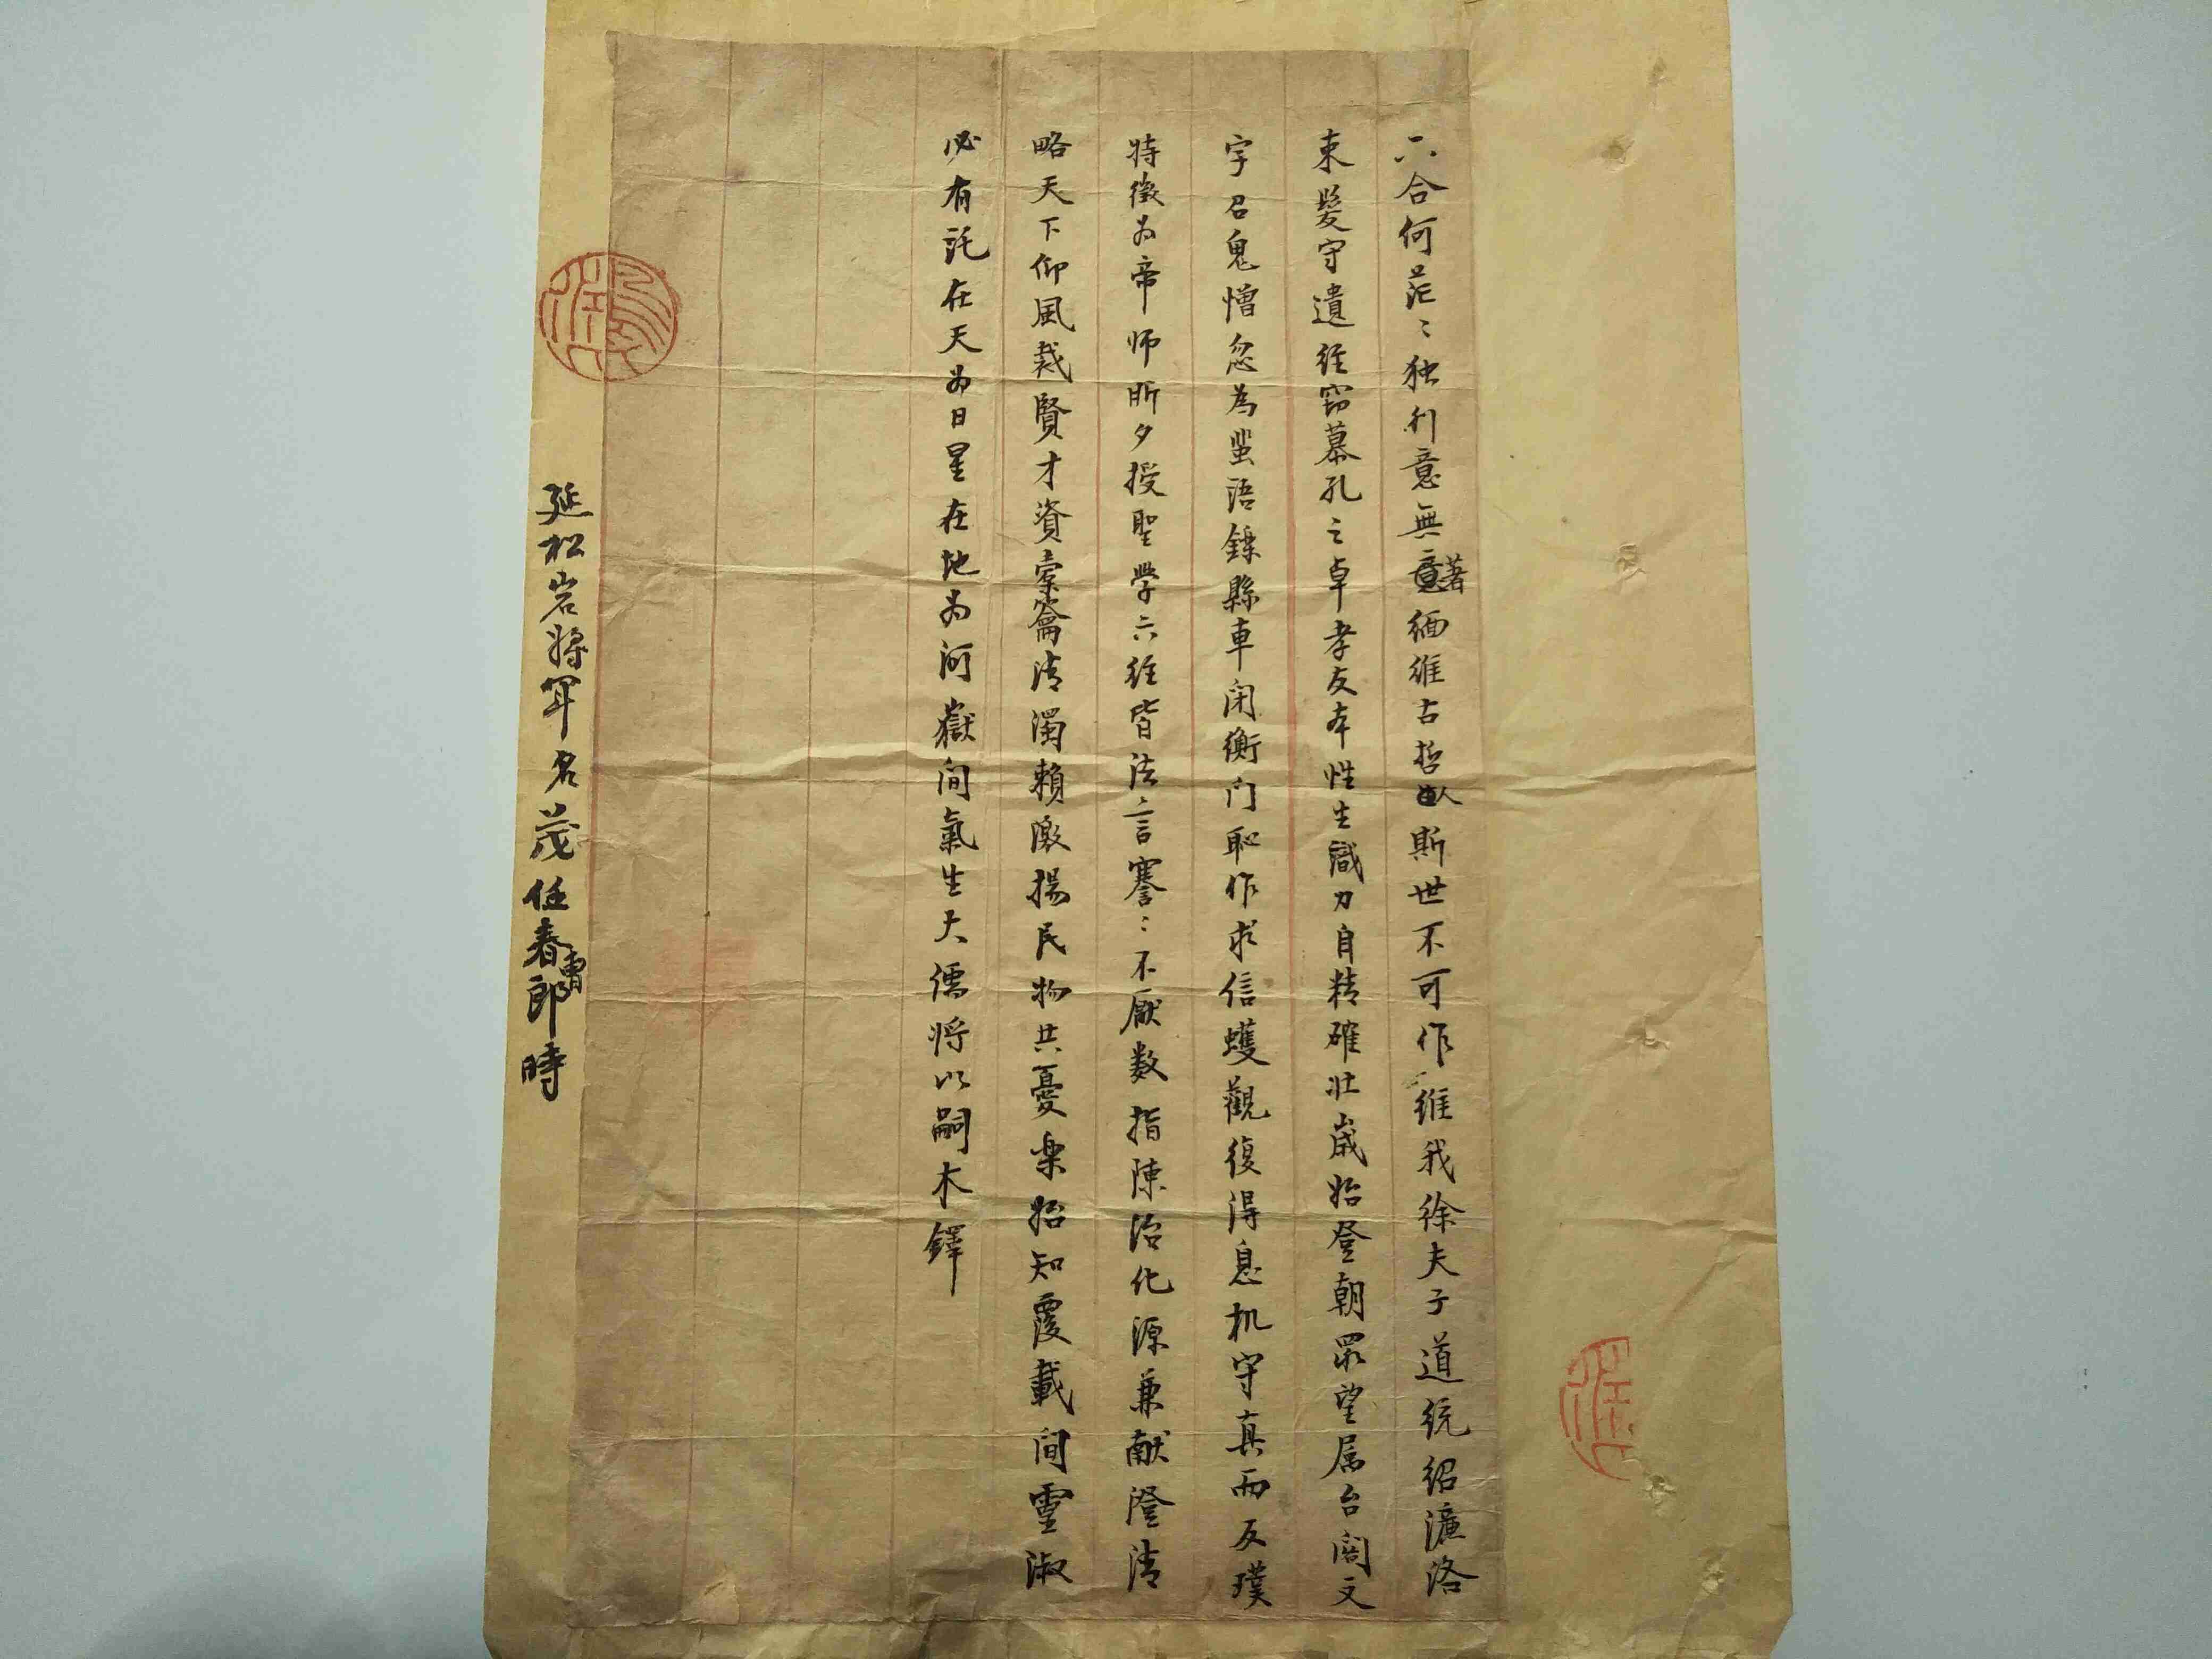 六合何茫〻独利意無著緬維古哲人斯世不可作維我徐夫子道統紹濂洛
束髮守遺經窃慕孔之卓孝友本性生識力自精確壯歲始登朝眾望属台閣文
字召鬼憎忽為蜚語鑠縣車闭衡门恥作求信蠖觀復得息机守真而反璞
特徵为帝师昕夕授聖學六经皆法言謇〻不厭数指陳治化源兼献澄清
略天下仰風裁賢才資橐籥清濁賴激揚民物共憂楽始知覆載间靈淑
必有託在天为日星在地为河嶽间氣生大儒将以嗣木鐸
延松岩将军名茂任春曹郎時